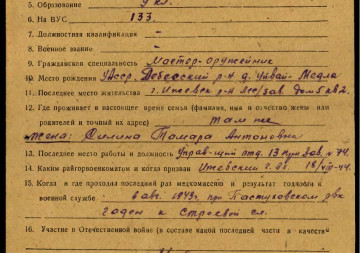 5. Образование 9 кл.
6. На ВУС 133.
7. Должностная квалификация -
8. Военное звание -
9. Гражданская специальность Мастер-оружейник
10. Место рождения УАССР. Дебесский р-н д. Уйвай-Медла
11. Последнее место жительства г. Ижевск р-н лес/зав. дом 5 кв 2.
12. Где проживает в настоящее время семья (фамилия, имя и отчество жены или
родителей и точный их адрес) там же
жена: Филина Тамара Антоновна
13. Последнее место работы и должность Управ-щий отд. 13 при зав. № 74.
14. Каким райгорвоенкоматом и когда призван Ижевский г. 18/VIII-44.
15. Когда и где проходил последний раз медкомиссию и результат годности к
военной службе 6 авг. 1943 г. при Пастуховском рвк
годен к строевой сл.
16. Участие в Отечественной войне (в составе какой последней части и в качестве